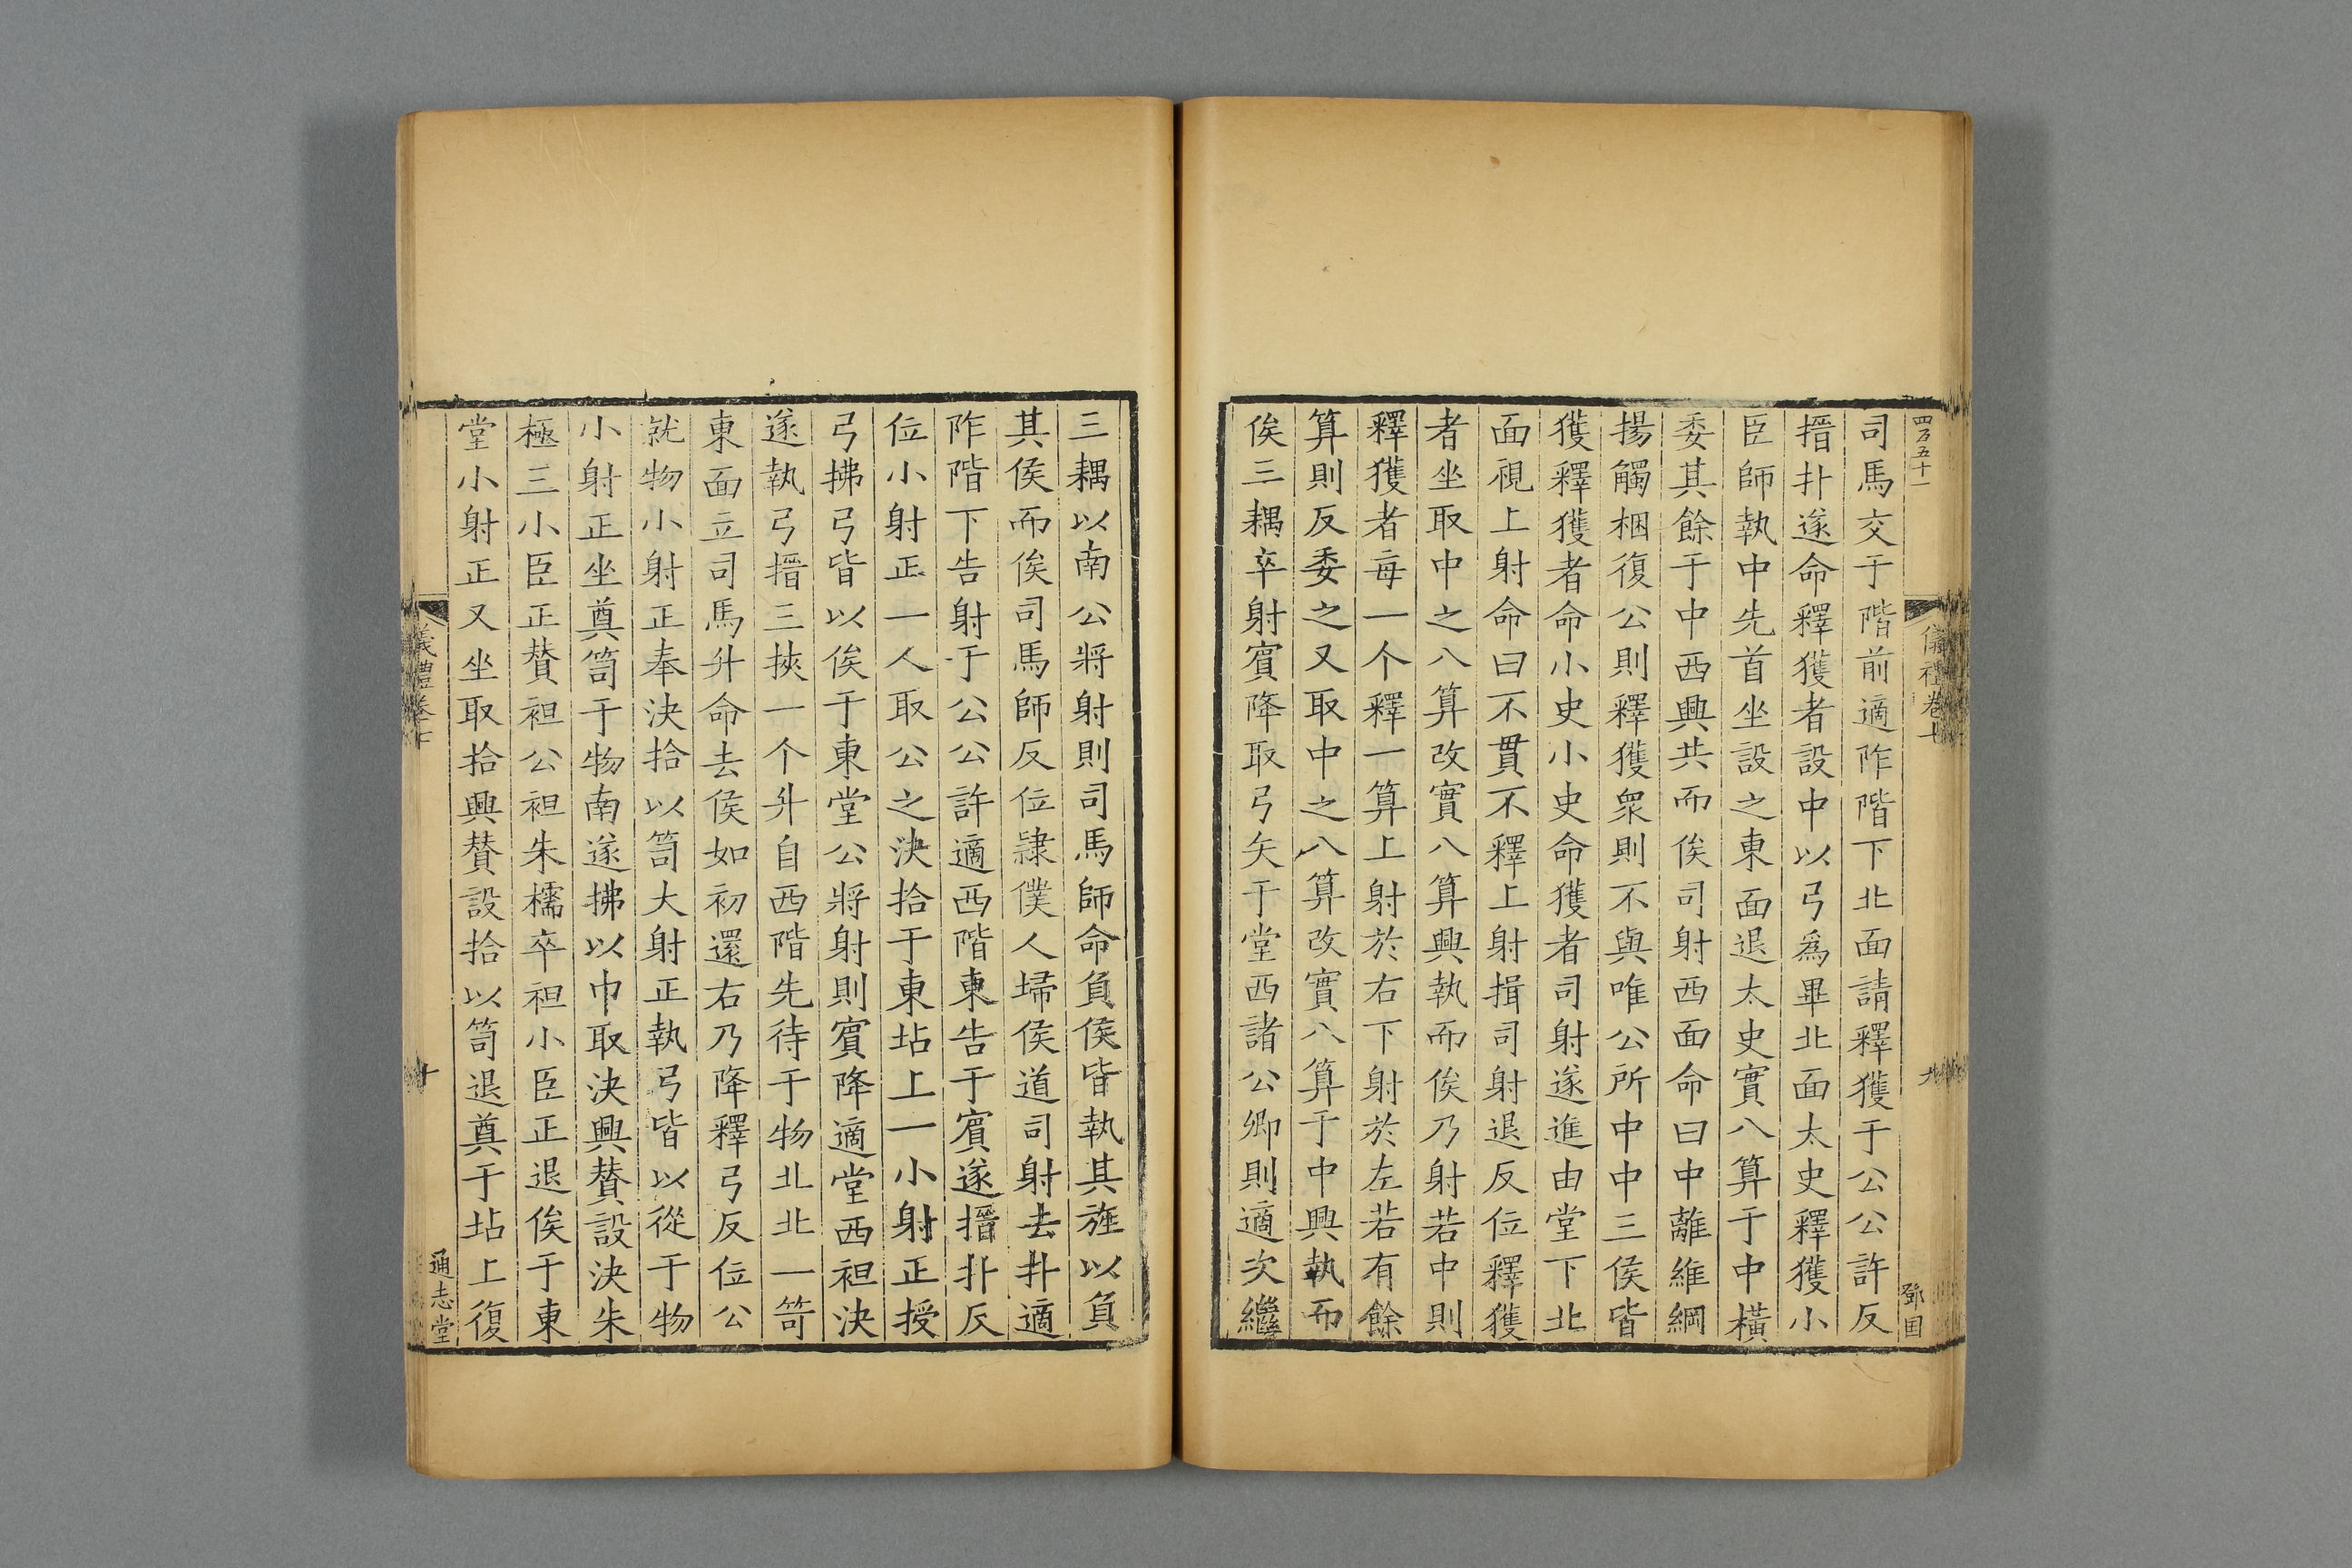 四百五十一
儀禮卷七
九
鄧国
司馬交于階前適阼階下北面請釋獲于公公許反
搢扑遂命釋獲者設中以弓爲畢北面太史釋獲小
臣師執中先首坐設之東面退太史實八算于中橫
委其餘于中西興共而俟司射西面命曰中離維綱
揚觸梱復公則釋獲衆則不與唯公所中中三侯皆
獲釋獲者命小史小史命獲者司射遂進由堂下北
面視上射命曰不貫不釋上射揖司射退反位釋獲
者坐取中之八算改實八算興執而俟乃射若中則
釋獲者每一个釋一算上射於右下射於左若有餘
算則反委之又取中之八算改實八算于中興執而
俟三耦卒射賓降取弓矢于堂西諸公卿則適次繼
三耦以南公將射則司馬師命負侯皆執其旌以負
其侯而俟司馬師反位隷僕人埽侯道司射去扑適
阼階下告射于公公許適西階東告于賓遂搢扑反
位小射正一人取公之決拾于東坫上一小射正授
弓拂弓皆以俟于東堂公將射則賓降適堂西袒決
遂執弓搢三挾一个升自西階先待于物北北一笴
東面立司馬升命去侯如初還右乃降釋弓反位公
就物小射正奉決拾以笥大射正執弓皆以從于物
小射正坐奠笥于物南遂拂以巾取決興贊設決朱
極三小臣正贊袒公袒朱襦卒袒小臣正退俟于東
堂小射正又坐取拾興贊設拾以笥退奠于坫上復
儀禮卷七
十
通志堂